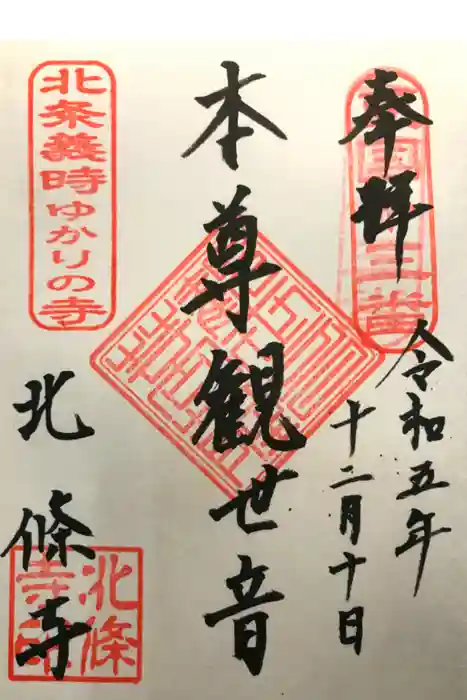 奉拝
令和五年
十二月十日
本尊観世音
北條寺
北条義時ゆかりの寺
北條寺印